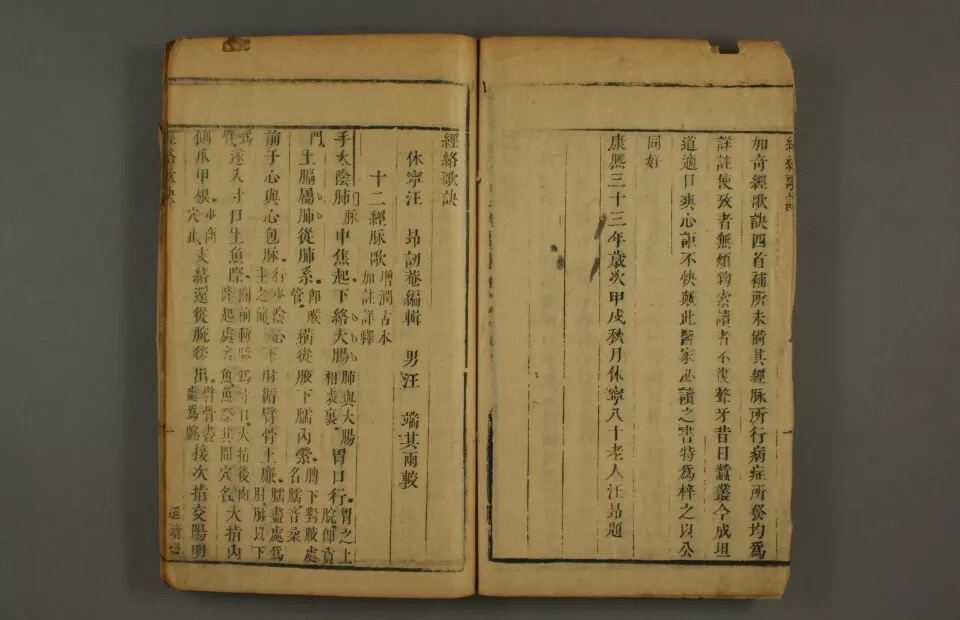 經絡歌訣
加奇經歌訣四首補所未備其經脉所行病症所發均爲
詳註使攷者無煩鈎索讀者不復聱牙昔日蠶叢今成坦
道適口爽心詎不快歟此醫家必讀之書特爲梓之以公
同好
康熙三十三年歲次甲戌秋月休寧八十老人汪昂題
經絡歌訣
休寧汪 昂訒菴編輯 男汪 端其兩較
十二經脉歌 增潤古本
加註詳釋
手太陰肺 脉 中焦起下絡大腸 肺與大腸
相表裏 胃口行 胃之上
脘卽賁
門 上膈屬肺從肺系 卽喉
管 橫從腋下臑內縈 膊下對腋處
名臑音柔
前于心與心包脉 行少陰心
主之前 下肘循臂骨上廉 臑盡處爲
肘肘以下
爲
臂 遂入寸口上魚際 關前動脉
爲寸口大指後肉
隆起處名
魚魚際其間穴名 大指內
側爪甲根 少商
穴止 支絡還從腕後出 臂骨盡
處爲腕 接次指交陽明
經絡歌訣
還讀齋